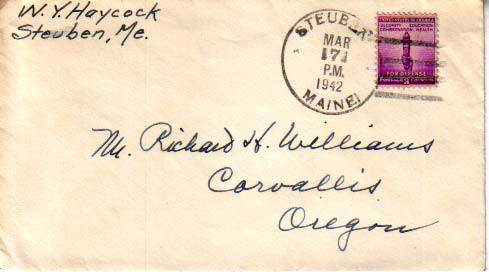 W. Y. Haycock
Steuben, Me.
STEUBEN
MAR
17
P.M.
1942
MAINE
UNITED STATES OF AMERICA
SECURITY EDUCATION
CONSERVATION HEALTH
FOR DEFENSE
Mr. Richard H. Williams
Corvallis
Oregon